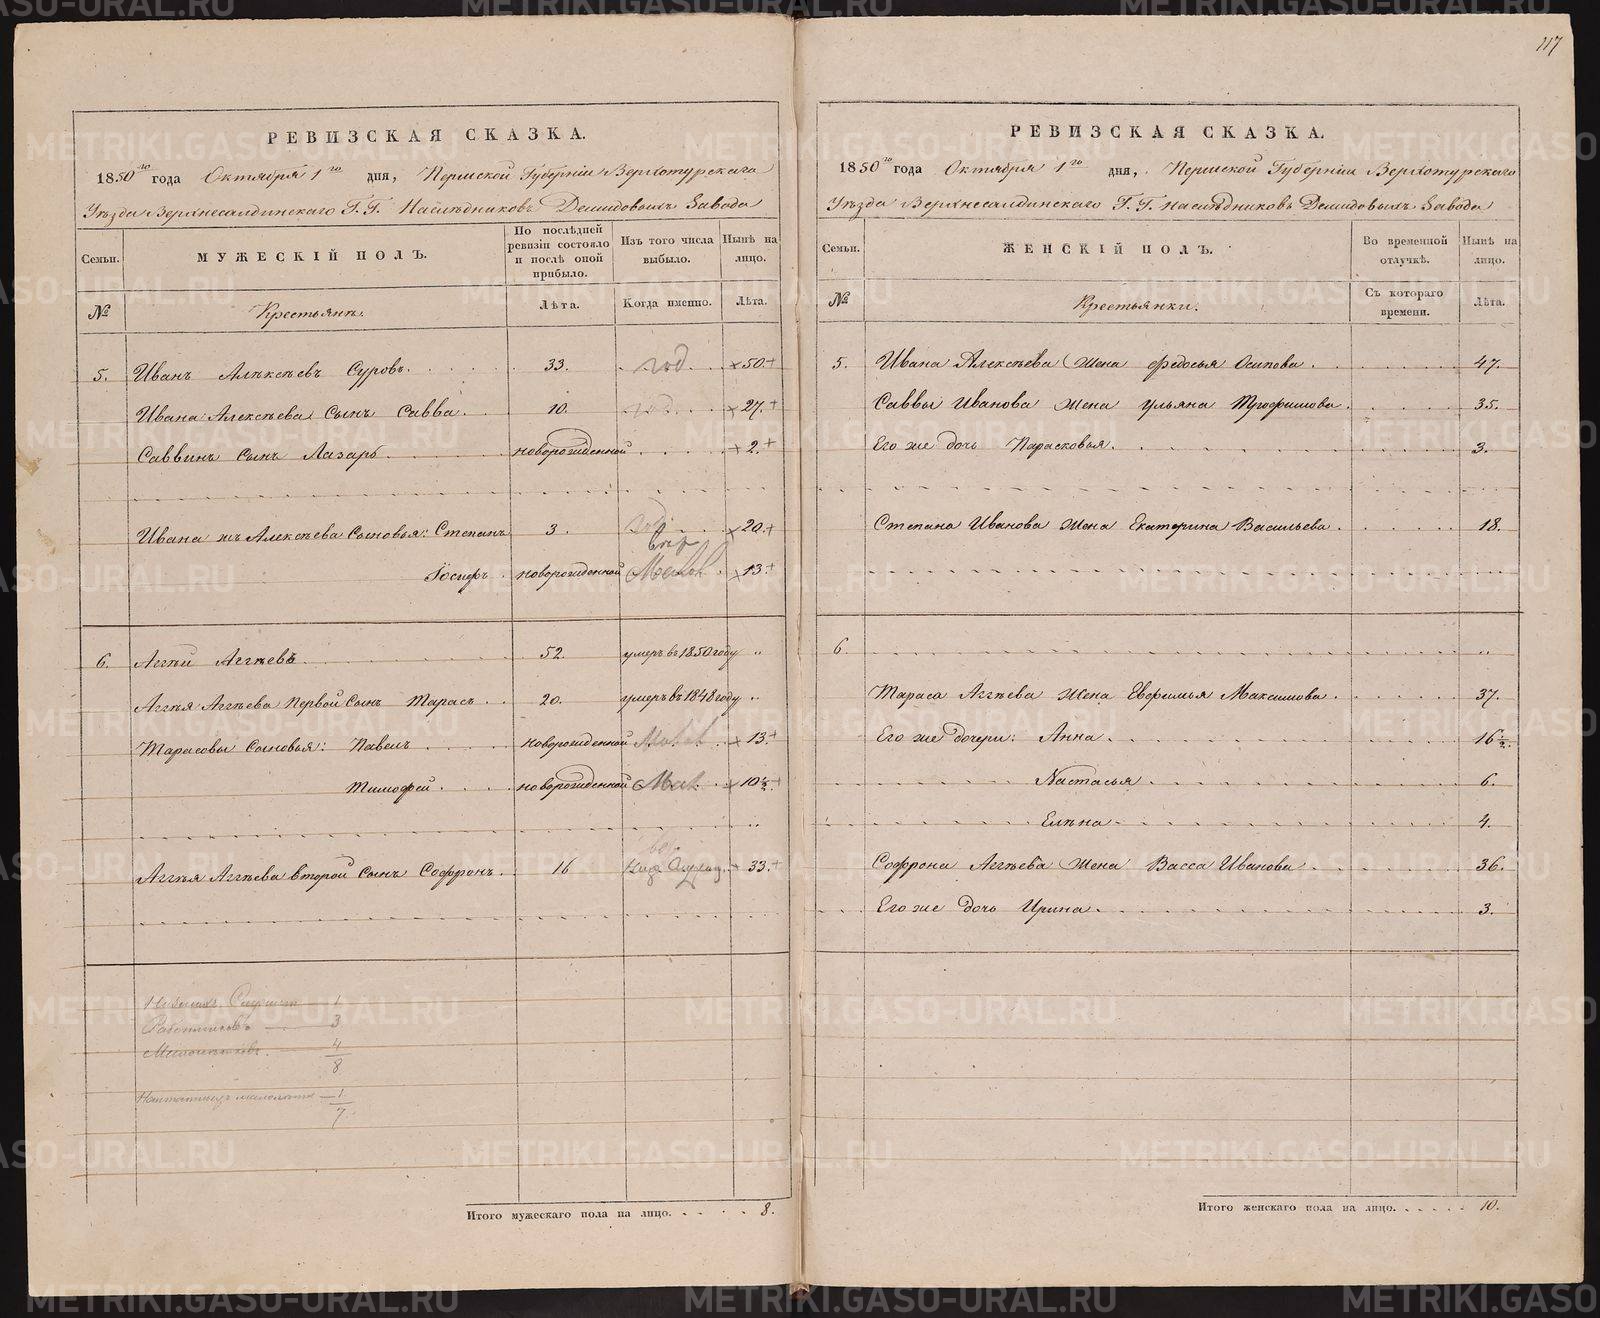 117
РЕВИЗСКАЯ СКАЗКА.
1850го года Октября 1го дня, Пермской Губерніи Верхотурскаго
Уѣзда Верхнесалдинскаго Г.Г. Наслѣдниковъ Демидовыхъ Завода
Семьи. МУЖЕСКІЙ ПОЛЪ. По послѣдней ревизіи состояло и послѣ оной прибыло. Изъ того числа выбыло. Нынѣ на лицо.
№ Крестьянъ. Лѣта. Когда именно. Лѣта.
5. Иванъ Алексѣевъ Суровъ. 33. год ×50.+
Ивана Алексѣева Сынъ Савва. 10. год ×27.+
Саввинъ Сынъ Лазарь новорожденной ×2.+
Ивана жъ Алексѣева Сыновья: Степанъ 3. ×20.+
Іосифъ новорожденной ×13.+
6. Аггѣй Аггѣевъ 52. умеръ въ 1850 году "
Аггѣя Аггѣева первой Сынъ Тарасъ 20. умеръ въ 1848 году "
Тарасовы Сыновья: Павелъ новорожденной ×13.+
Тимофей новорожденной ×10½.+
"
Аггѣя Аггѣева второй Сынъ Софронъ. 16 33.+
1
Работниковъ — 3
Малолѣтковъ. — 4
8
1
7.
Итого мужескаго пола на лицо. 8.
РЕВИЗСКАЯ СКАЗКА.
1850го года Октября 1го дня, Пермской Губерніи Верхотурскаго
Уѣзда Верхнесалдинскаго Г.Г. Наслѣдниковъ Демидовыхъ Завода
Семьи. ЖЕНСКІЙ ПОЛЪ. Во временной отлучкѣ. Нынѣ на лицо.
№ Крестьянки. Съ котораго времени. Лѣта.
5. Ивана Алексѣева Жена Федосья Осипова 47.
Саввы Иванова Жена Ульяна Трофимова. 35.
Его же дочь Парасковья. 3.
Степана Иванова Жена Екатерина Васильева. 18.
6. "
Тараса Аггѣева Жена Евфимья Максимова 37.
Его же дочери: Анна. 16½.
Настасья 6.
Елѣна 4.
Софрона Аггѣева Жена Васса Иванова 36.
Его же дочь Ирина. 3.
Итого женскаго пола на лицо. 10.